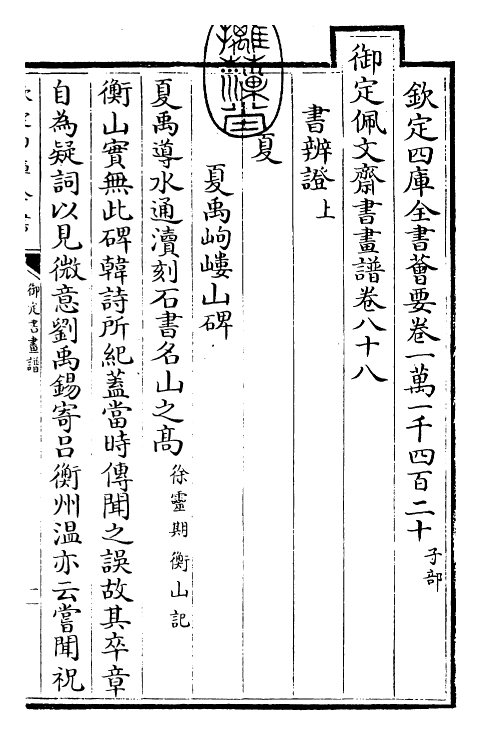 欽定四庫全書薈要卷一萬一千四百二十 子部
御定佩文齋書畫譜卷八十八
書辨證上
夏
夏禹岣嶁山碑
夏禹導水通瀆刻石書名山之髙 徐靈期衡山記
衡山實無此碑韓詩所紀蓋當時傳聞之誤故其卒章
自為疑詞以見微意劉禹錫寄呂衡州温亦云嘗聞祝
御定書畫譜